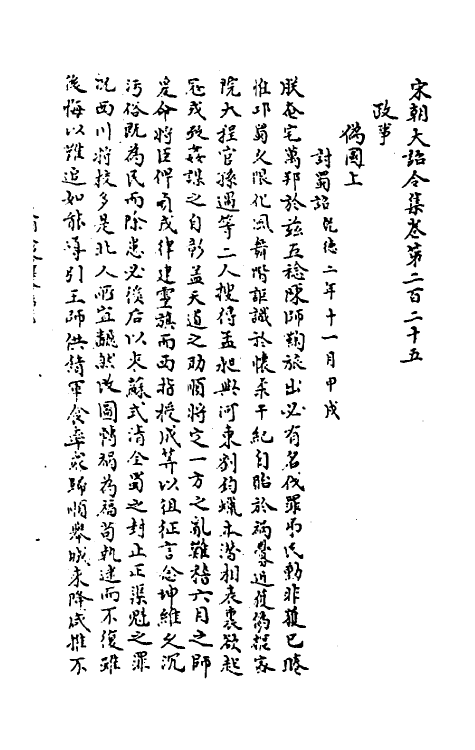 宋朝大詔令集卷第二百二十五
政事
偽國上
討蜀詔乾德二年十一月甲戌
朕奄宅萬邦於兹五稔陳師鞠旅出必有名伐罪弔民動非獲已睠
惟邛蜀久限化風舞階詎識於懷柔干紀自貽於禍釁近獲偽樞密
院大程官孫遇等二人搜得孟昶與河東劉鈞蠟末潛相表裏欲起
冦戎致姦謀之自彰盖天道之助順將定一方之亂難稽六月之師
爰命將臣俾司戎律建靈旗而西指授成筭以徂征言念坤維久沉
污俗既為民而除患必徯后以來蘇式清全蜀之封止正渠魁之罪
况西川將校多是北人所宜飜然改圖轉禍為福苟執迷而不復雖
後悔以難追如能導引王師供饋軍食率衆歸順舉城來降咸推不